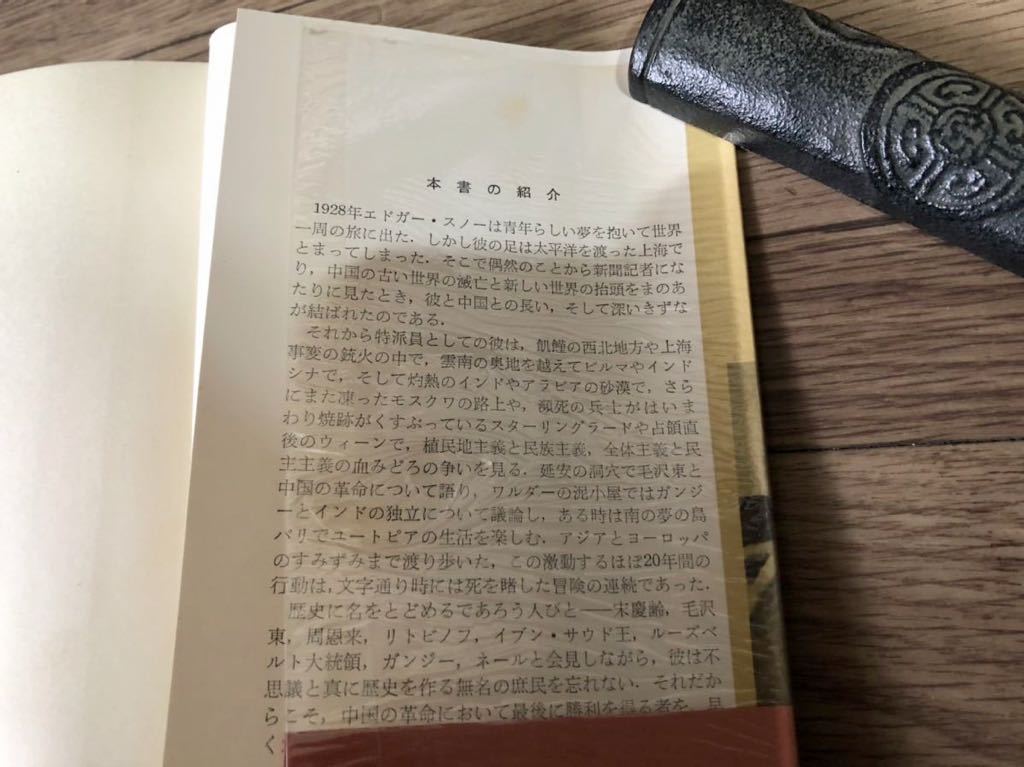 本書の紹介
1928年エドガー・スノーは青年らしい夢を抱いて世界
一周の旅に出た．しかし彼の足は太平洋を渡った上海で
とまってしまった．そこで偶然のことから新聞記者にな
り，中国の古い世界の滅亡と新しい世界の抬頭をまのあ
たりに見たとき，彼と中国との長い，そして深いきずな
が結ばれたのである．
それから特派員としての彼は，飢饉の西北地方や上海
事変の銃火の中で，雲南の奥地を越えてビルマやインド
シナで，そして灼熱のインドやアラビアの砂漠で，さら
にまた凍ったモスクワの路上や，瀕死の兵士がはいま
わり焼跡がくすぶっているスターリングラードや占領直
後のウィーンで，植民地主義と民族主義，全体主義と民
主主義の血みどろの争いを見る．延安の洞穴で毛沢東と
中国の革命について語り，ワルダーの泥小屋ではガンジ
ーとインドの独立について議論し，ある時は南の夢の島
バリでユートピアの生活を楽しむ．アジアとヨーロッパ
のすみずみまで渡り歩いた，この激動するほぼ20年間の
行動は，文字通り時には死を賭した冒険の連続であった．
歴史に名をとどめるであろう人びと――宋慶齢，毛沢
東，周恩来，リトビノフ，イブン・サウド王，ルーズベ
ルト大統領，ガンジー，ネールと会見しながら，彼は不
思議と真に歴史を作る無名の庶民を忘れない．それだか
らこそ，中国の革命において最後に勝利を得る者を，早
く